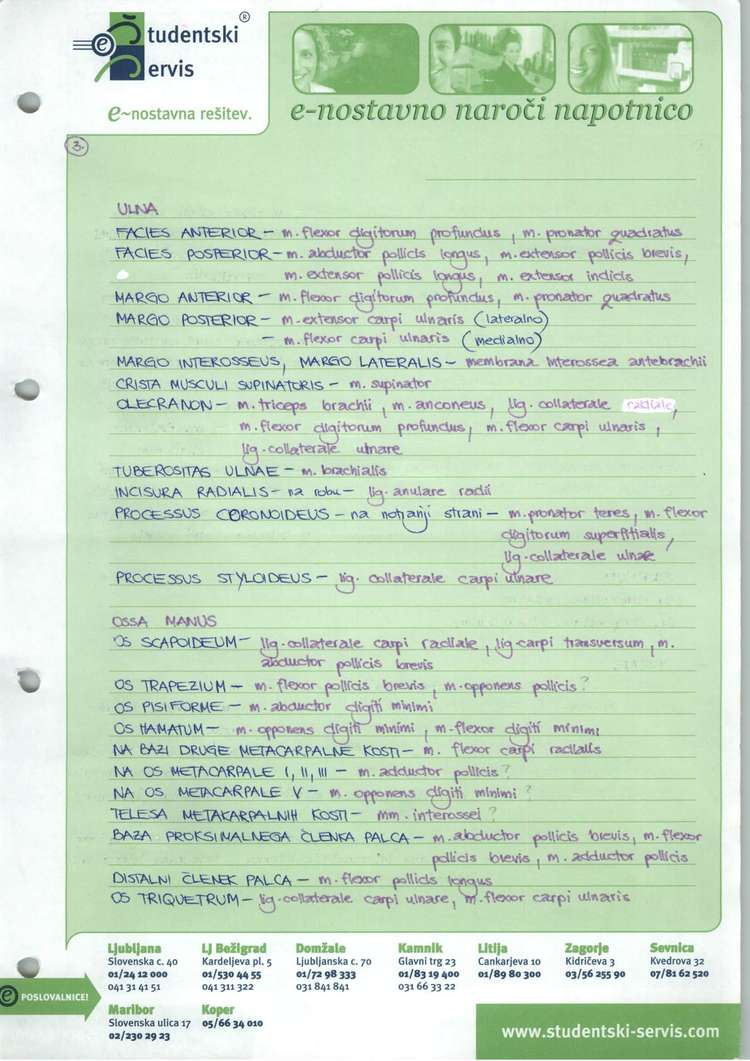 Študentski
Servis
®
e~nostavna rešitev.
e-nostavno naroči napotnico
3.
ULNA
FACIES ANTERIOR – m. flexor digitorum profundus, m. pronator quadratus
FACIES POSTERIOR – m. abductor pollicis longus, m. extensor pollicis brevis,
m. extensor pollicis longus, m. extensor indicis
MARGO ANTERIOR – m. flexor digitorum profundus, m. pronator quadratus
MARGO POSTERIOR – m. extensor carpi ulnaris (lateralno)
– m. flexor carpi ulnaris (medialno)
MARGO INTEROSSEUS, MARGO LATERALIS – membrana interossea antebrachii
CRISTA MUSCULI SUPINATORIS – m. supinator
OLECRANON – m. triceps brachii, m. anconeus, lig. collaterale radiale,
m. flexor digitorum profundus, m. flexor carpi ulnaris,
lig. collaterale ulnare
TUBEROSITAS ULNAE – m. brachialis
INCISURA RADIALIS – na robu – lig. anulare radii
PROCESSUS CORONOIDEUS – na notranji strani – m. pronator teres, m. flexor
digitorum superfitialis,
lig. collaterale ulnae
PROCESSUS STYLOIDEUS – lig. collaterale carpi ulnare
OSSA MANUS
OS SCAPOIDEUM – lig. collaterale carpi radiale, lig. carpi transversum, m.
abductor pollicis brevis
OS TRAPEZIUM – m. flexor pollicis brevis, m. opponens pollicis?
OS PISIFORME – m. abductor digiti minimi
OS HAMATUM – m. opponens digiti minimi, m. flexor digiti minimi
NA BAZI DRUGE METACARPALNE KOSTI – m. flexor carpi radialis
NA OS METACARPALE I, II, III – m. adductor pollicis?
NA OS METACARPALE V – m. opponens digiti minimi?
TELESA METAKARPALNIH KOSTI – mm. interossei?
BAZA PROKSIMALNEGA ČLENKA PALCA – m. abductor pollicis brevis, m. flexor
pollicis brevis, m. adductor pollicis
DISTALNI ČLENEK PALCA – m. flexor pollicis longus
OS TRIQUETRUM – lig. collaterale carpi ulnare, m. flexor carpi ulnaris
e POSLOVALNICE!
Ljubljana
Slovenska c. 40
01/24 12 000
041 31 41 51
LJ Bežigrad
Kardeljeva pl. 5
01/530 44 55
041 311 322
Domžale
Ljubljanska c. 70
01/72 98 333
031 841 841
Kamnik
Glavni trg 23
01/83 19 400
031 66 33 22
Litija
Cankarjeva 10
01/89 80 300
Zagorje
Kidričeva 3
03/56 255 90
Sevnica
Kvedrova 32
07/81 62 520
Maribor
Slovenska ulica 17
02/230 29 23
Koper
05/66 34 010
www.studentski-servis.com